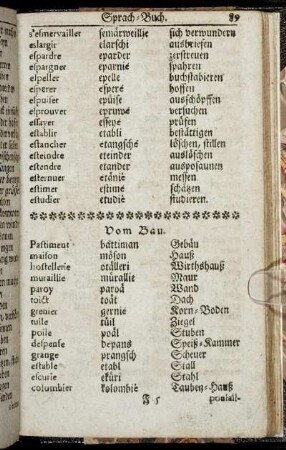 Sprach-Buch. 89
s'esmervailler semärweillie sich verwundern
eslargir elarschi ausbreiten
espardre eparder zerstreuen
espargner eparnié spahren
espeller epelle buchstabieren
esperer esperé hoffen
espuiser epüise ausschöpffen
esprouver epruwé versuchen
essayer esseye prüfen
establir etabli bestättigen
estancher etangsché löschen, stillen
esteindre eteinder auslöschen
estendre etander
esternuer etänüe
estimer estimé schätzen
estudier etudié studieren.
Vom Bau.
Bastiment battiman Gebäu
maison mäson Hauß
hostellerie otälleri Wirthshauß
muraillie mürallie Maur
paroy paroä Wand
toict toät Dach
grenier gernie Korn-Boden
tuile tüil Ziegel
poile poäl Stuben
despense depans Speiß-Kammer
grange prangsch Scheuer
estable etabl Stall
escurie eküri Stahl
columbier kolombié Tauben-Hauß
F 5 poulail-